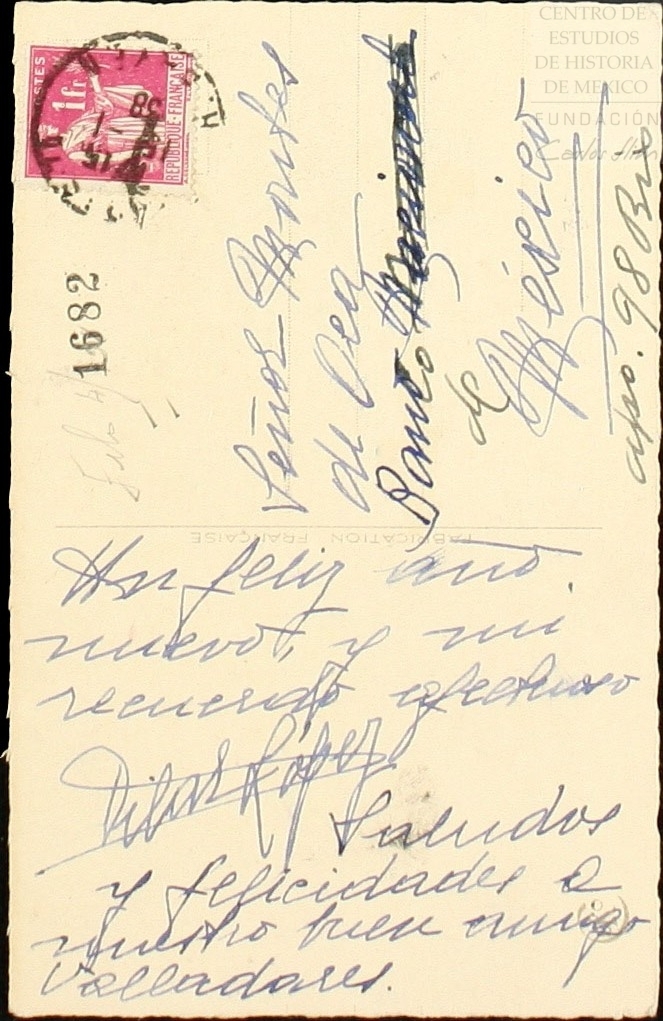 CENTRO DE
ESTUDIOS
DE HISTORIA
DE MEXICO
FUNDACIÓN
Carlos Slim
POSTES
1fr
REPUBLIQUE-FRANÇAISE
15
38
1682
Señor Montes
de Oca
Banco
de
México
apso. 98 Bis
FABRICATION FRANÇAISE
Un feliz año
nuevo, y mi
recuerdo afectuoso
Pilar López
Saludos
y felicidades a
nuestro buen amigo
Valladares.